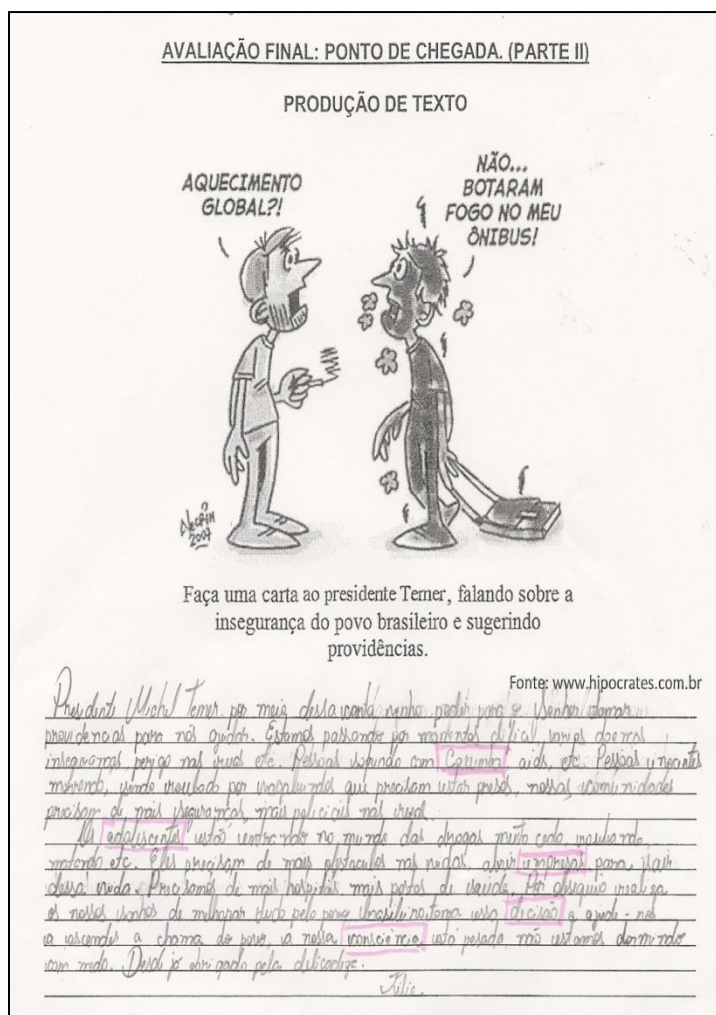 AVALIAÇÃO FINAL: PONTO DE CHEGADA. (PARTE II)
PRODUÇÃO DE TEXTO
AQUECIMENTO
GLOBAL?!
NÃO...
BOTARAM
FOGO NO MEU
ÔNIBUS!
2007
Faça uma carta ao presidente Temer, falando sobre a
insegurança do povo brasileiro e sugerindo
providências.
Fonte: www.hipocrates.com.br
Presidente Michel Temer por meio dessa carta venho pedir para o Senhor tomar
providencias para nós ajudar. Estamos passando por momentos dificil, varias doenças
inseguranças perigo nas ruas etc. Pessoas sofrendo com aids, etc. Pessoas inocentes
morrendo, sendo roubado por que precisam estar presos, nossas comunidades
precisam de mais seguranças, mais policiais nas ruas.
Os adalescentes estão entrando no mundo das drogas muito cedo, roubando
matando etc. Eles precisam de mais nas vidas, abrir para sair
dessa vida. Precisamos de mais hospitais mais postos de saúde. Por obsequio realiza
os nossos sonhos de melhorar tudo pelo povo brasileiro, toma essa dicisão e ajude-nos
a ascender a chama do povo, a nossa consciência está pesada não estamos dormindo
com medo. Desde já obrigado pela